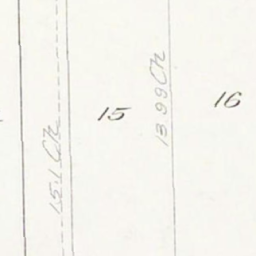 15.1 Ch
15
13.99 Ch
16